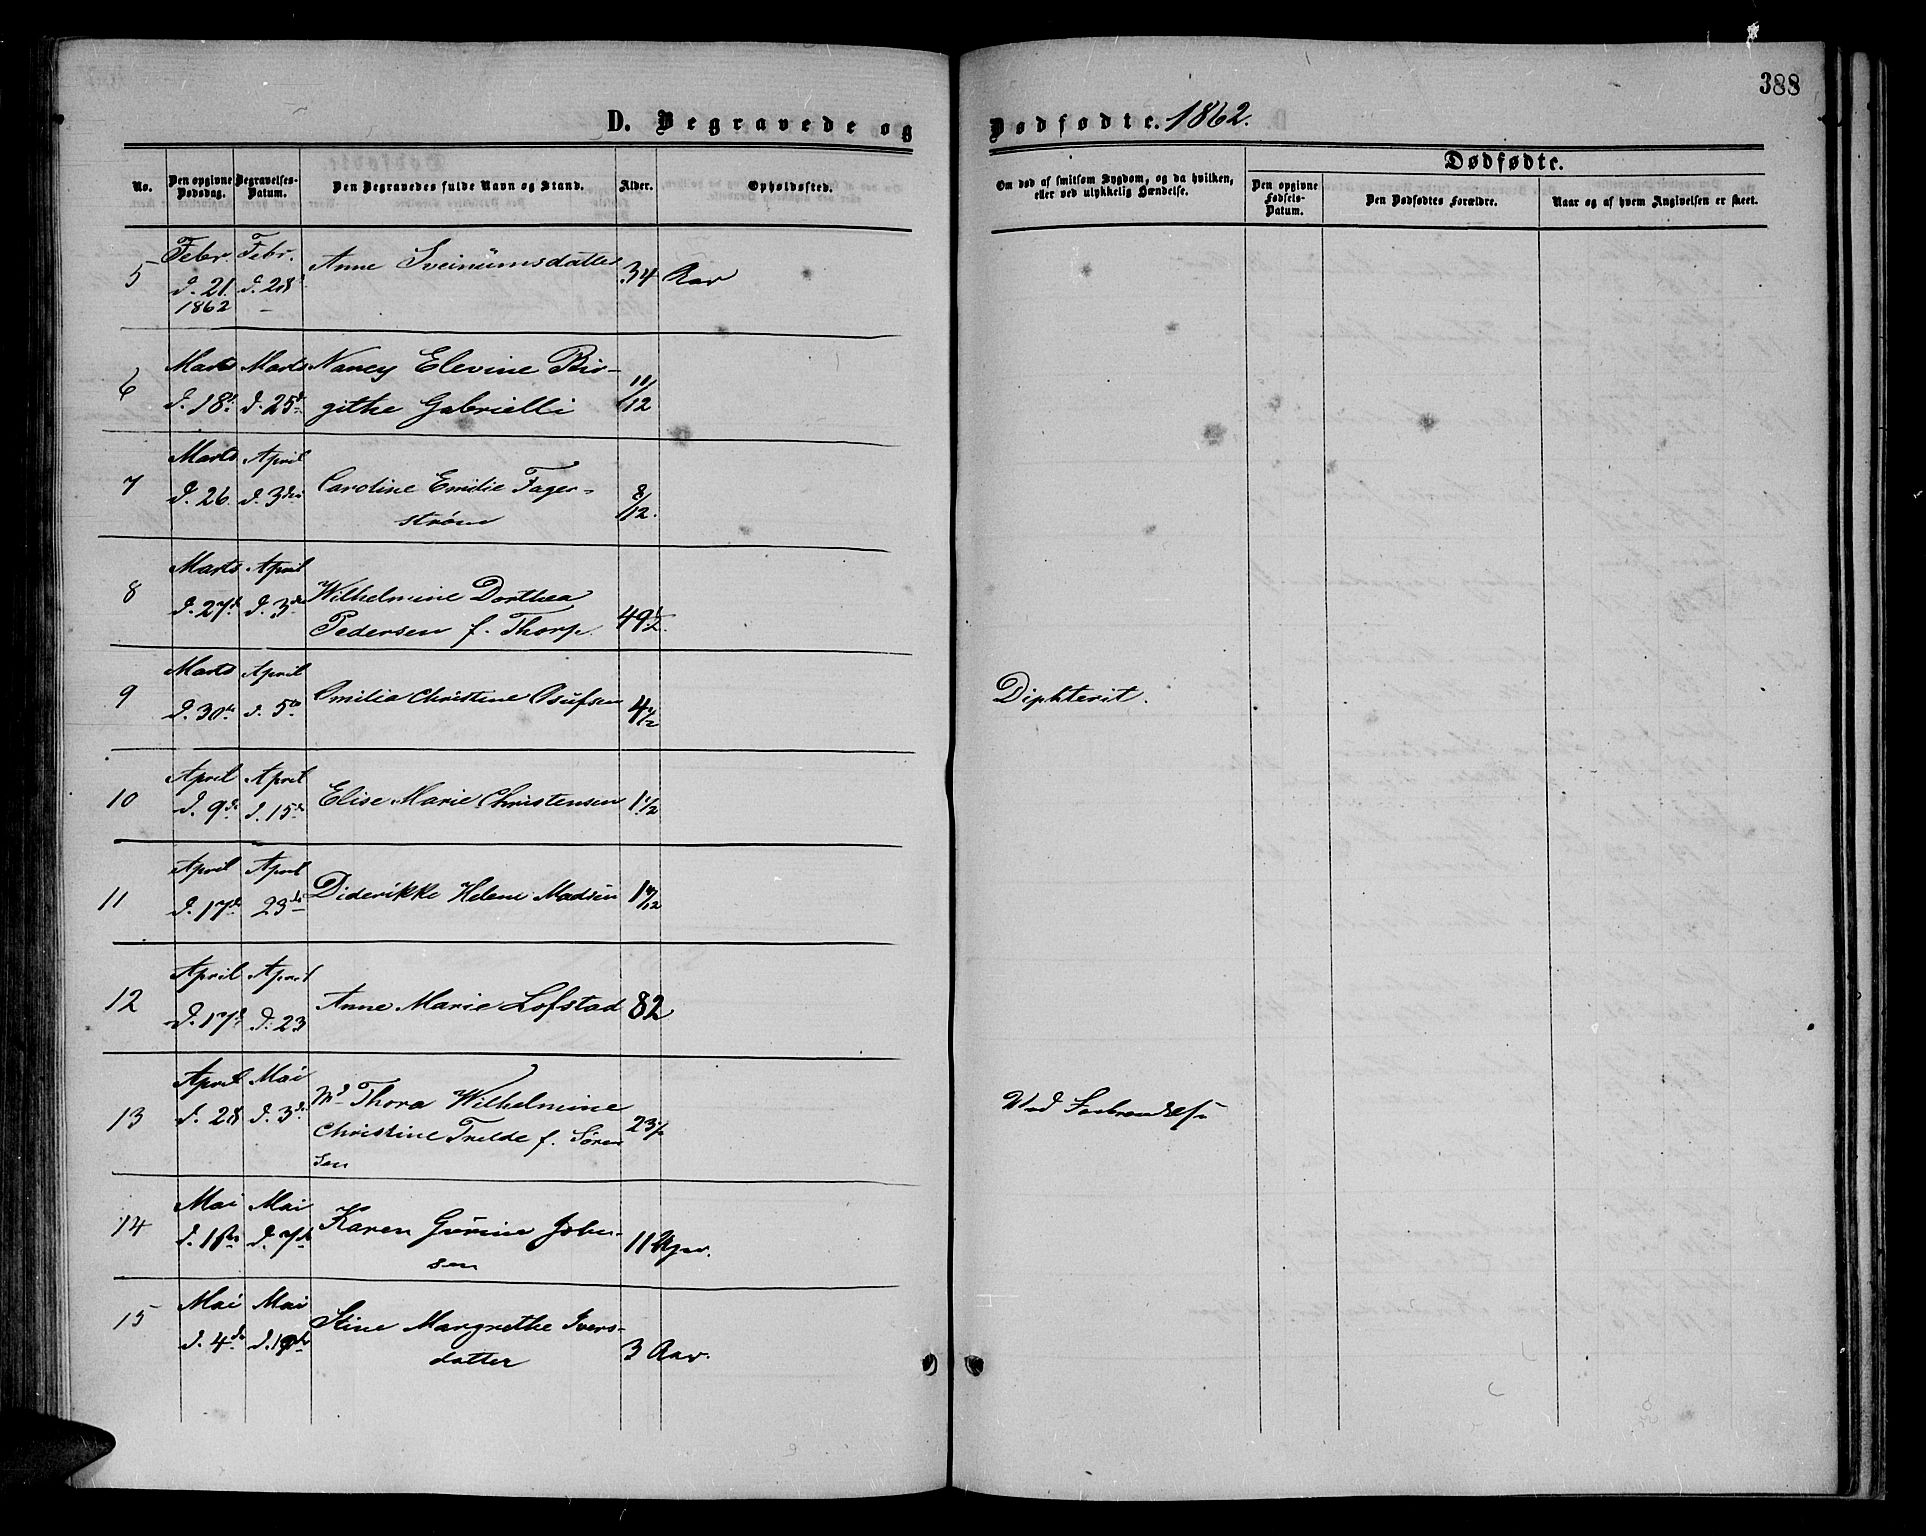 388
D. Begravede og Dødfødte. 1862.
No. Den opgivne Dødsdag. Begravelses-Datum. Den Begravedes fulde Navn og Stand. Alder. Opholdssted. Om død af smitsom Sygdom, og da hvilken, eller ved ulykkelig Hændelse. Dødfødte.
Den opgivne Fødsels-Datum. Den Dødfødtes Forældre. Naar og af hvem Angivelsen er skeet.
5 Febr. d. 21. 1862 Febr. d. 28 Anne 34 Aar
6 Marts d. 18d Marts d. 25d Nancy Elevine Bir-
githe Gabrielli 11/12
7 Marts d. 26 April d. 3die Caroline Emilie Fager-
strøm 8/12.
8 Marts d. 27d April d. 3d Wilhelmine Dorthea
Pedersen f. Thorp. 49½.
9 Marts d. 30te April d. 5te Emilia Christine 4½ Diphterit.
10 April d. 9de April d. 15de Elise Marie Christensen 1½
11 April d. 17de April 23de Diderikke Helene Madsen
12 April d. 17d April d. 23 Anne Marie Lofstad 82
13 April d. 28 Mai d. 3d Md Thora Wilhelmine
Christine Trelde f. Søren
sen 23½ Ved
14 Mai d. 1ste Mai d. 7de Karen Gurine Johan-
sen 11 Uger.
15 Mai d. 4de Mai Stine Margrethe Ivers-
datter 3 Aar.